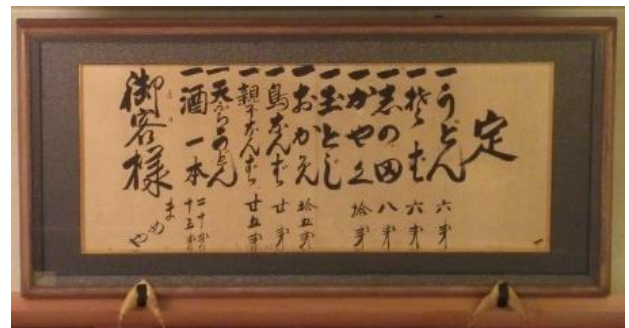 定
一うどん 六銭
一そば 六銭
一志の田 八銭
一かやく 拾銭
一玉とじ
一おかめ 拾五銭
一鳥なんば 廿銭
一親子なんば 廿五銭
一天ぷらうどん 二十銭
一酒 一本 十五銭
御客様 まめや